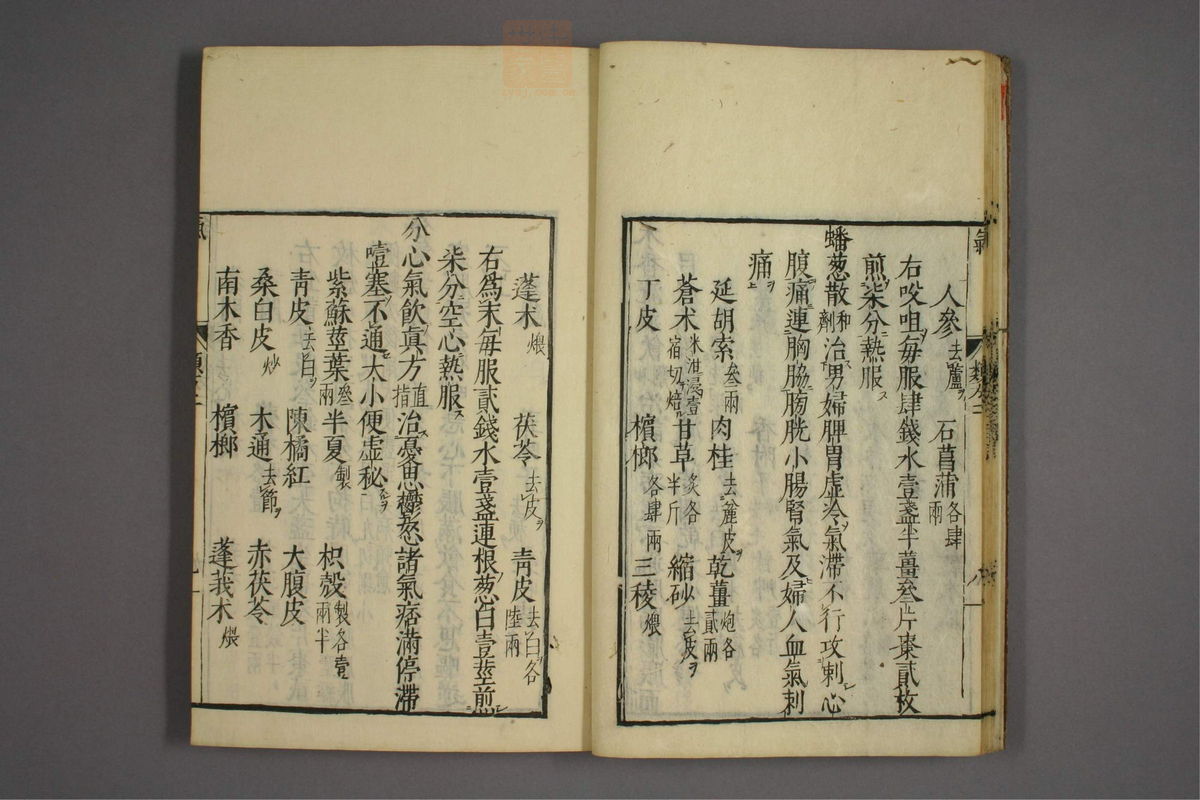 人參去蘆 石菖蒲各肆兩
右㕮咀每服肆錢水壹盞半薑叁片棗貳枚
煎柒分熱服
蟠葱散和劑 治男婦脾胃虛冷氣滯不行攻刺心
腹痛連胸脇膀胱小腸腎氣及婦人血氣刺
痛
延胡索叁兩 肉桂去麄皮 乾薑炮各貳兩
蒼术米泔浸壹宿切焙 甘草炙各半斤 縮砂去皮
丁皮 檳榔各肆兩 三稜煨
蓬术煨 茯苓去皮 青皮去白各陸兩
右爲末每服貳錢水壹盞連根葱白壹莖煎
柒分空心熱服
分心氣飲真方直指 治憂思鬱怒諸氣痞滿停滯
噎塞不通大小便虛秘
紫蘇莖葉叁兩 半夏製 枳殼製各壹兩半
青皮去白 陳橘紅 大腹皮
桑白皮炒 木通去節 赤茯苓
南木香 檳榔 蓬莪术煨
氣